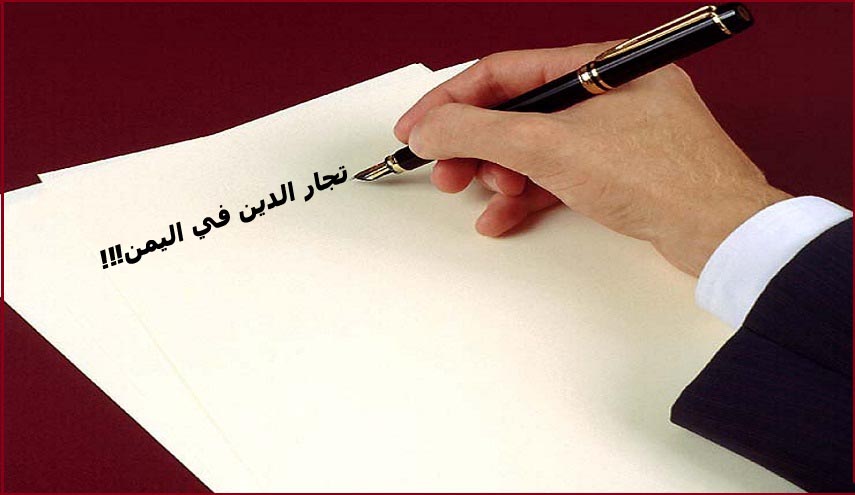 تجار الدين في اليمن!!!